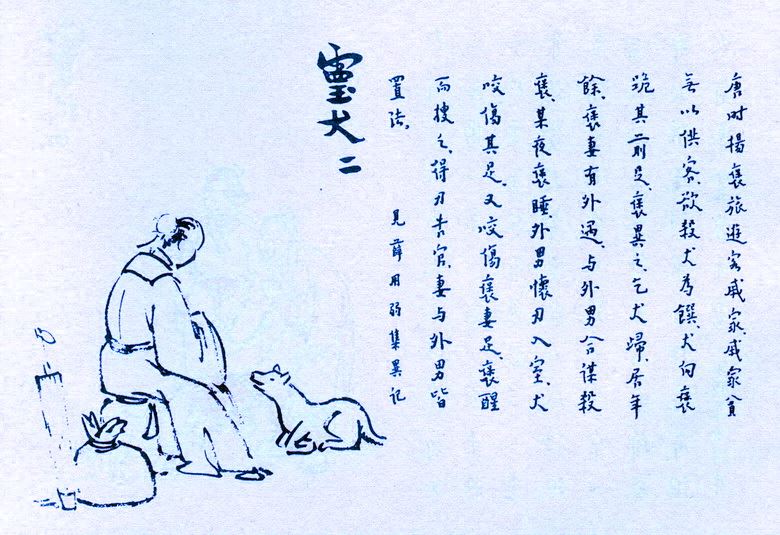 唐时楊褒旅遊客戚家、戚家貧
無以供客、欲殺犬為饌、犬向褒
跪其前足、褒異之、乞犬歸、居年
餘、褒妻有外遇、与外男合謀殺
褒、某夜褒睡、外男懷刃入室、犬
咬傷其足、又咬傷褒妻足、褒醒
而搜之、得刃告官、妻与外男皆
置法。 見薛用弱集異記
靈犬二